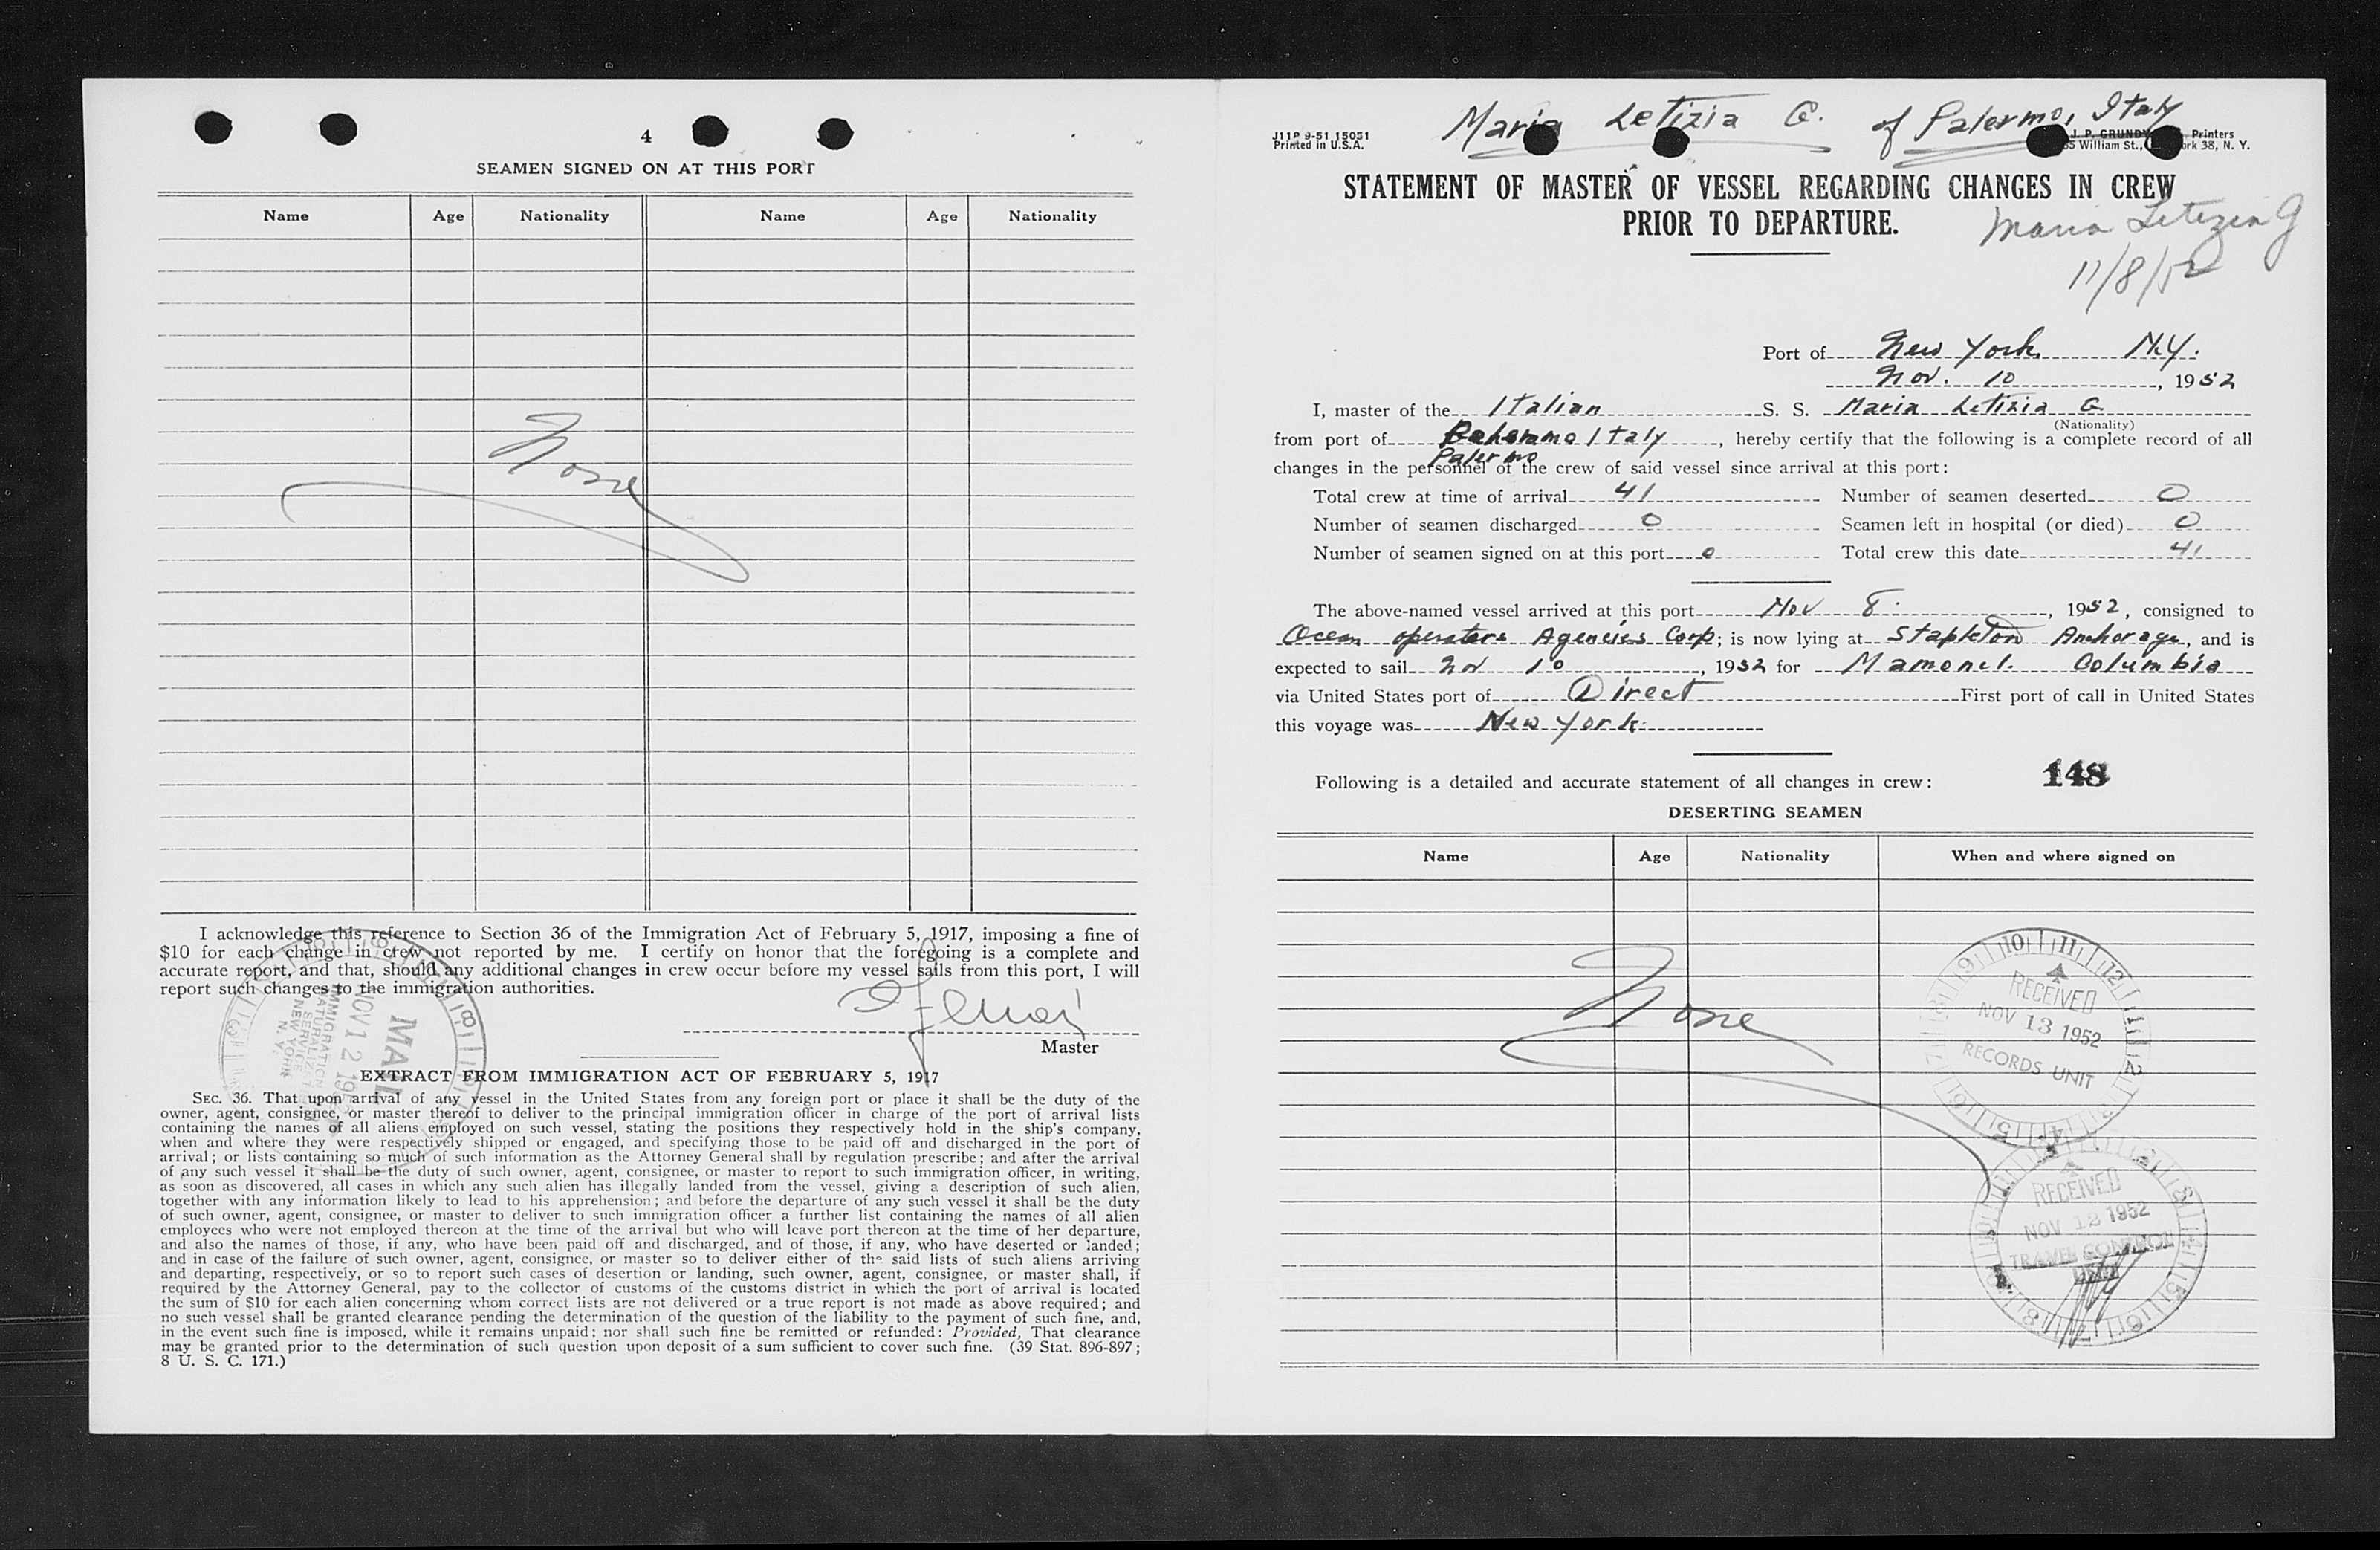 4
SEAMEN SIGNED ON AT THIS PORT
Name Age Nationality Name Age Nationality
None
I acknowledge this reference to Section 36 of the Immigration Act of February 5, 1917, imposing a fine of
$10 for each change in crew not reported by me. I certify on honor that the foregoing is a complete and
accurate report, and that, should any additional changes in crew occur before my vessel sails from this port, I will
report such changes to the immigration authorities.
Master
MAIL
NOV 12 195
IMMIGRATION
SERVICE
NEW YORK
N. Y.
EXTRACT FROM IMMIGRATION ACT OF FEBRUARY 5, 1917
SEC. 36. That upon arrival of any vessel in the United States from any foreign port or place it shall be the duty of the
owner, agent, consignee, or master thereof to deliver to the principal immigration officer in charge of the port of arrival lists
containing the names of all aliens employed on such vessel, stating the positions they respectively hold in the ship's company,
when and where they were respectively shipped or engaged, and specifying those to be paid off and discharged in the port of
arrival; or lists containing so much of such information as the Attorney General shall by regulation prescribe; and after the arrival
of any such vessel it shall be the duty of such owner, agent, consignee, or master to report to such immigration officer, in writing,
as soon as discovered, all cases in which any such alien has illegally landed from the vessel, giving a description of such alien,
together with any information likely to lead to his apprehension; and before the departure of any such vessel it shall be the duty
of such owner, agent, consignee, or master to deliver to such immigration officer a further list containing the names of all alien
employees who were not employed thereon at the time of the arrival but who will leave port thereon at the time of her departure,
and also the names of those, if any, who have been paid off and discharged, and of those, if any, who have deserted or landed;
and in case of the failure of such owner, agent, consignee, or master so to deliver either of the said lists of such aliens arriving
and departing, respectively, or so to report such cases of desertion or landing, such owner, agent, consignee, or master shall, if
required by the Attorney General, pay to the collector of customs of the customs district in which the port of arrival is located
the sum of $10 for each alien concerning whom correct lists are not delivered or a true report is not made as above required; and
no such vessel shall be granted clearance pending the determination of the question of the liability to the payment of such fine, and,
in the event such fine is imposed, while it remains unpaid; nor shall such fine be remitted or refunded: Provided, That clearance
may be granted prior to the determination of such question upon deposit of a sum sufficient to cover such fine. (39 Stat. 896-897;
8 U. S. C. 171.)
Maria Letizia G. of Palermo, Italy
J11P 9-51 15051
Printed in U.S.A.
J. P. GRUNDY Printers
William St., ork 38, N. Y.
STATEMENT OF MASTER OF VESSEL REGARDING CHANGES IN CREW
PRIOR TO DEPARTURE.
Maria Letizia G
11/8/52
Port of New York N.Y.
Nov. 10, 1952
I, master of the Italian S. S. Maria Letizia G
(Nationality)
from port of Italy, hereby certify that the following is a complete record of all
Palermo
changes in the personnel of the crew of said vessel since arrival at this port:
Total crew at time of arrival 41 Number of seamen deserted 0
Number of seamen discharged 0 Seamen left in hospital (or died) 0
Number of seamen signed on at this port 0 Total crew this date 41
The above-named vessel arrived at this port Nov 8., 1952, consigned to
Ocean operators Agencies Corp; is now lying at Stapleton Anchorage, and is
expected to sail Nov 10, 1952 for Mamonel. Columbia
via United States port of Direct First port of call in United States
this voyage was New York.
Following is a detailed and accurate statement of all changes in crew:
148
DESERTING SEAMEN
Name Age Nationality When and where signed on
None
RECEIVED
NOV 13 1952
RECORDS UNIT
RECEIVED
NOV 12 1952